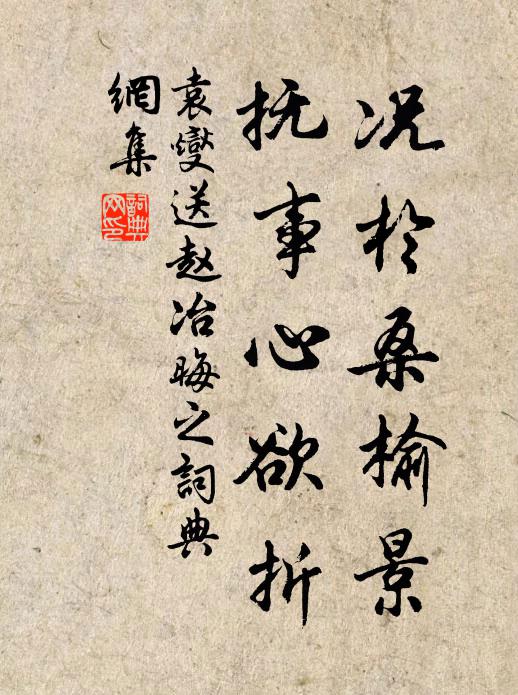 况於桑榆景
抚事心欲折
袁燮送赵冶晦之詞典
網集
詞典網印